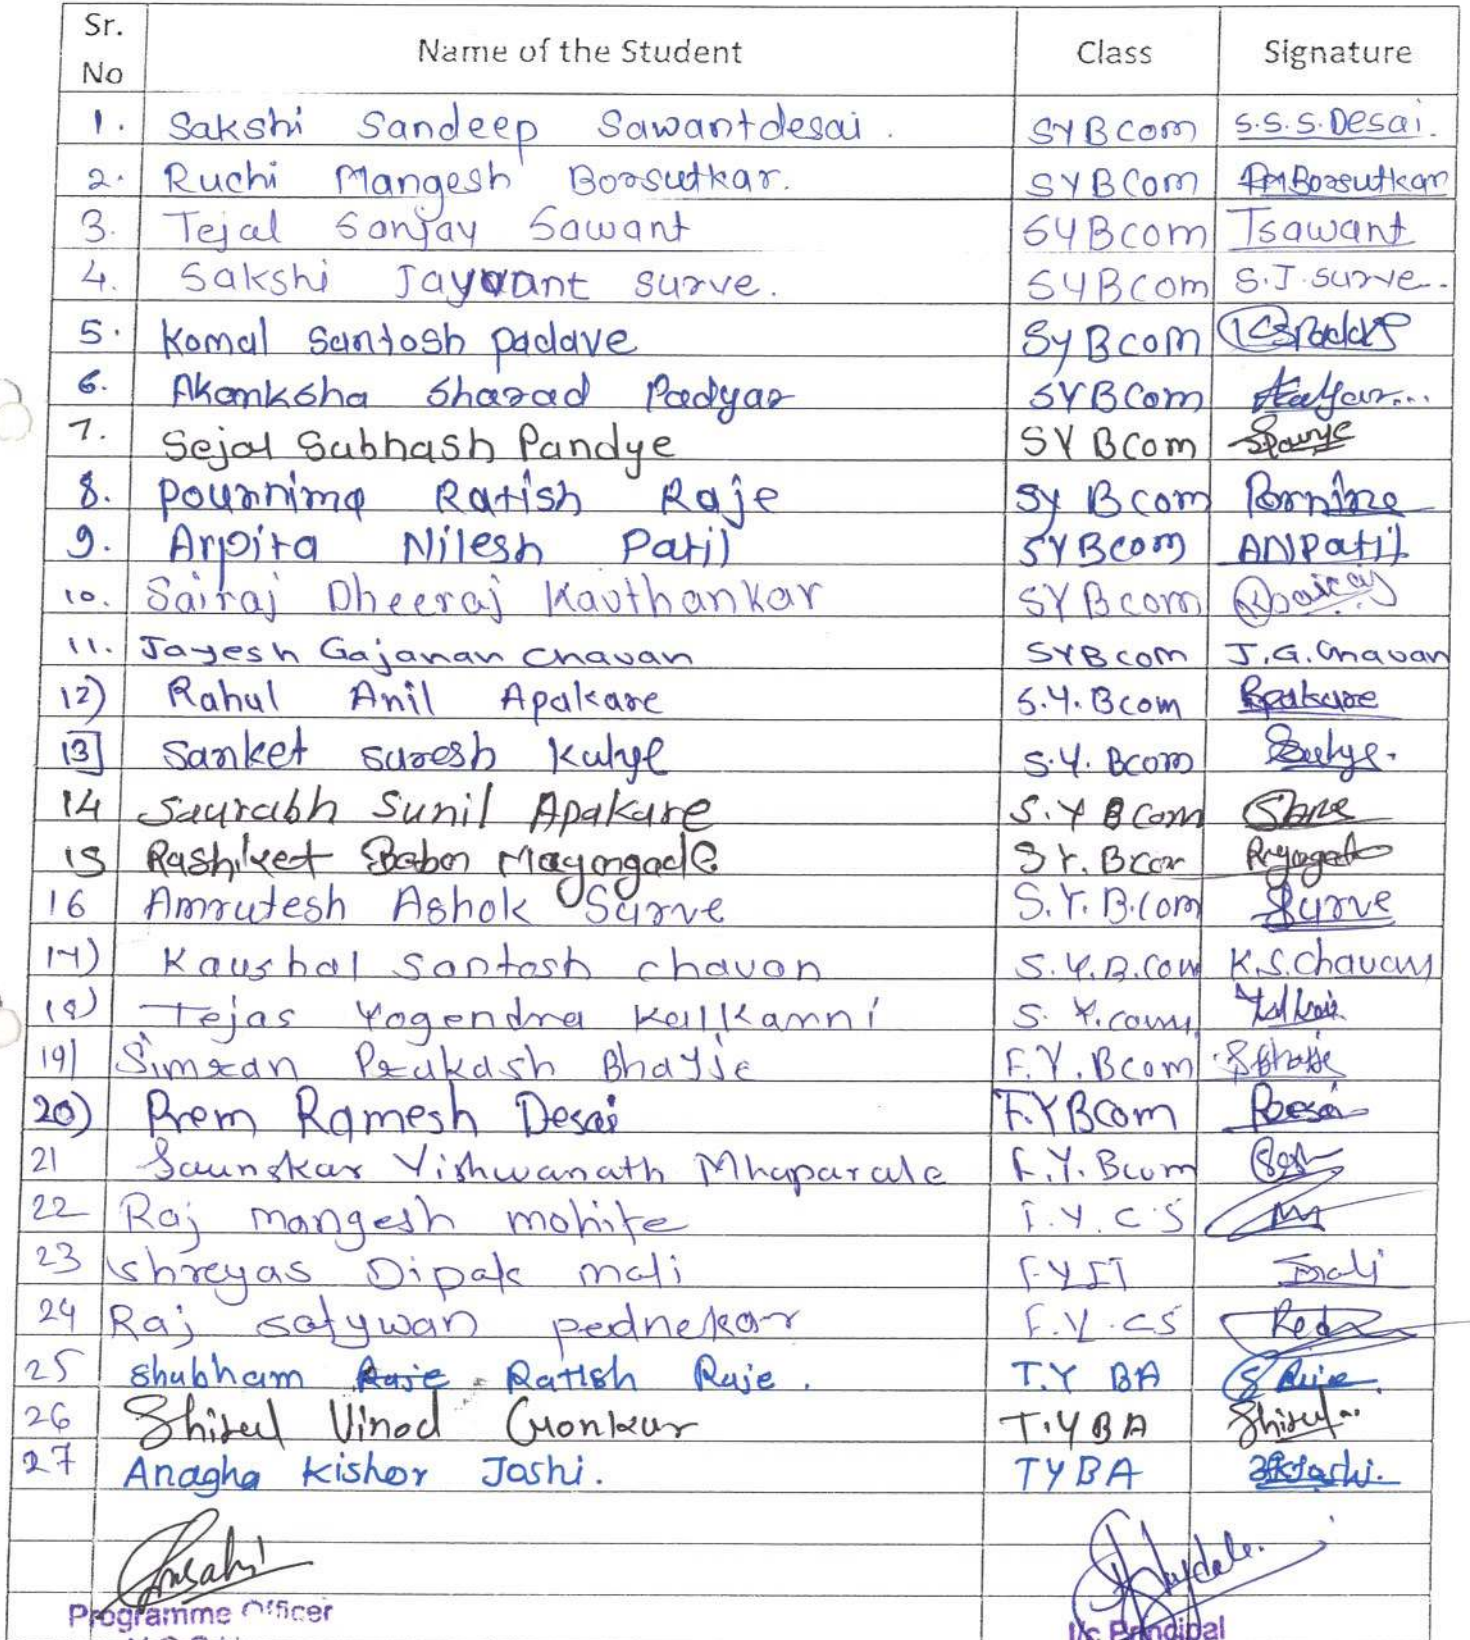 Sr. No Name of the Student Class Signature
1. Sakshi Sandeep Sawantdesai. SYBCom S.S.S.Desai.
2. Ruchi Mangesh Borsutkar. SYBCom RMBorsutkar
3. Tejal Sanjay Sawant SYBCom Tsawant
4. Sakshi Jayvant Surve. SYBCom S.J.Surve.
5. Komal Santosh Padave SyBCom
6. Akanksha Sharad Padyar SYBCom
7. Sejal Subhash Pandye SYBCom
8. Pournima Ratish Raje Sy BCom
9. Arpita Nilesh Patil SYBCom ANPatil
10. Sairaj Dheeraj Kavthankar SYBCom
11. Jayesh Gajanan Chavan SYBCom J.G.Chavan
12) Rahul Anil Apakare S.Y.Bcom
13 Sanket Suresh Kulye S.Y. Bcom
14 Saurabh Sunil Apakare S.Y BCom
15 Babon SY.BCom
16 Amrutesh Ashok Surve S.Y.B.Com Surve
17) Kaushal Santosh Chavan S.Y.B.Com K.S.Chavan
18) Tejas Yogendra S.Y.com
19) Simran Prakash F.Y.Bcom
20) Prem Ramesh Desai F.YBCom
21 Vishwanath F.Y.Bcom
22 Raj Mangesh Mohite F.Y.C.S
23 Shreyas Dipak Mali F.Y IT Mali
24 Raj Satywan Pednekar F.Y.CS
25 Shubham Raje Ratish Raje. T.Y BA
26 Vinod T.Y BA
27 Anagha Kishor Joshi. TYBA
Programme Officer I/c Principal